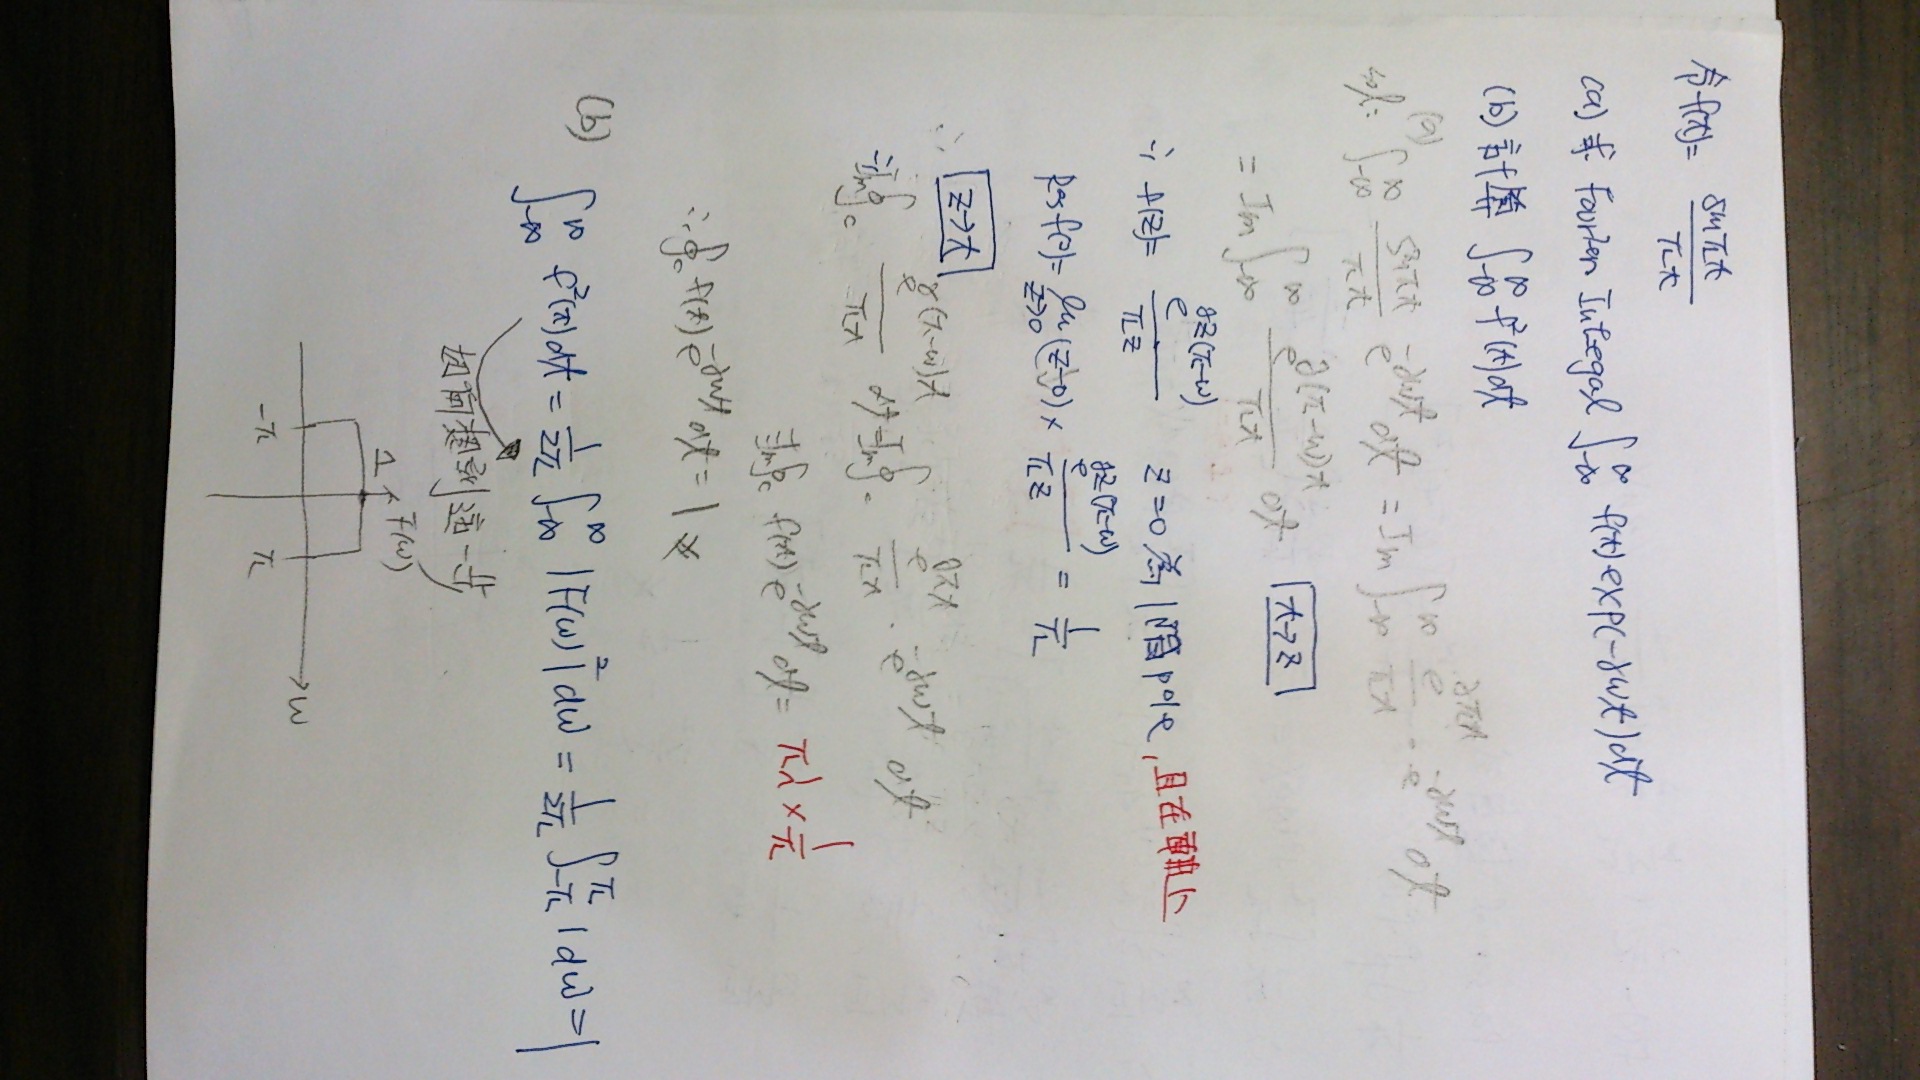 令 f(t) = sin πt / πt
(a) 求 Fourier Integal ∫_{-∞}^{∞} f(t) exp(-jωt) dt
(b) 計算 ∫_{-∞}^{∞} f²(t) dt
sol: (a) ∫_{-∞}^{∞} sin πt / πt e^{-jωt} dt = Im ∫_{-∞}^{∞} e^{jπt} / πt · e^{-jωt} dt
= Im ∫_{-∞}^{∞} e^{j(π-ω)t} / πt dt t→z
∴ f(z) = e^{jz(π-ω)} / πz z=0 為 1 階 pole, 且在軸上
Res f(0) = lim_{z→0} (z-0) × e^{jz(π-ω)} / πz = 1/π
∴ z→t
Im ∮_c e^{j(π-ω)t} / πt dt = Im ∮_c e^{jπt} / πt · e^{-jωt} dt
= Im ∮_c f(t) e^{-jωt} dt = πi × 1/π
∴ ∮_c f(t) e^{-jωt} dt = 1
(b) ∫_{-∞}^{∞} f²(t) dt = 1/2π ∫_{-∞}^{∞} |F(ω)|² dω = 1/2π ∫_{-π}^{π} 1 dω = 1
如何想到這一步
1 F(ω)
-π π ω